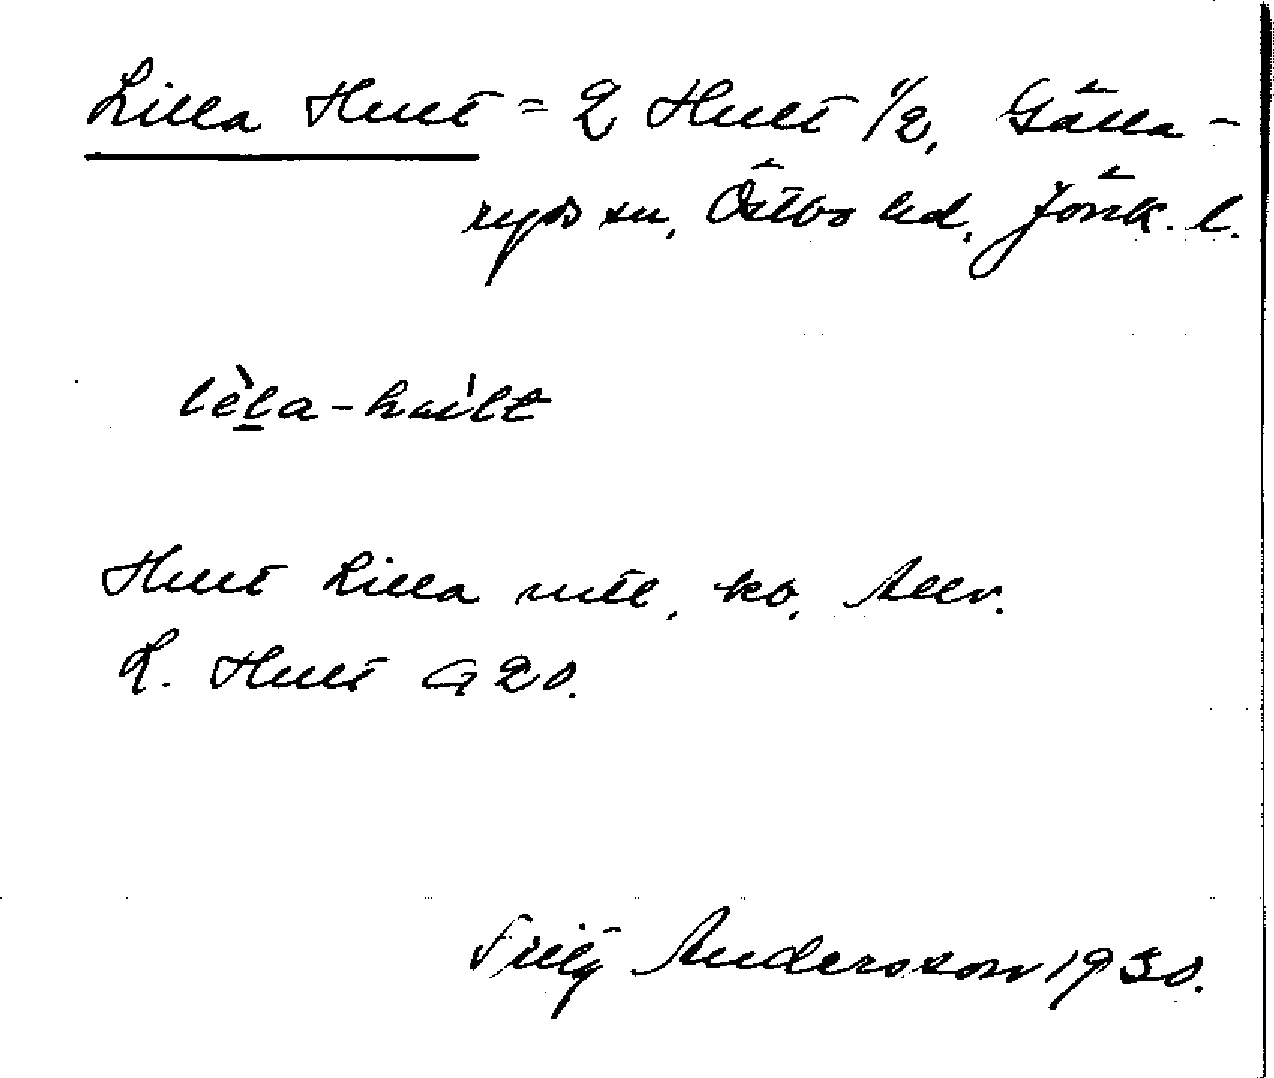 Lilla Hult = 2 Hult 1/2, Gälla-
ryds sn, Östbo hd, Jönk. l.
lèla-hult
Hult Lilla mtl, ko, Allv.
L. Hult G 20.
Andersson 1930.